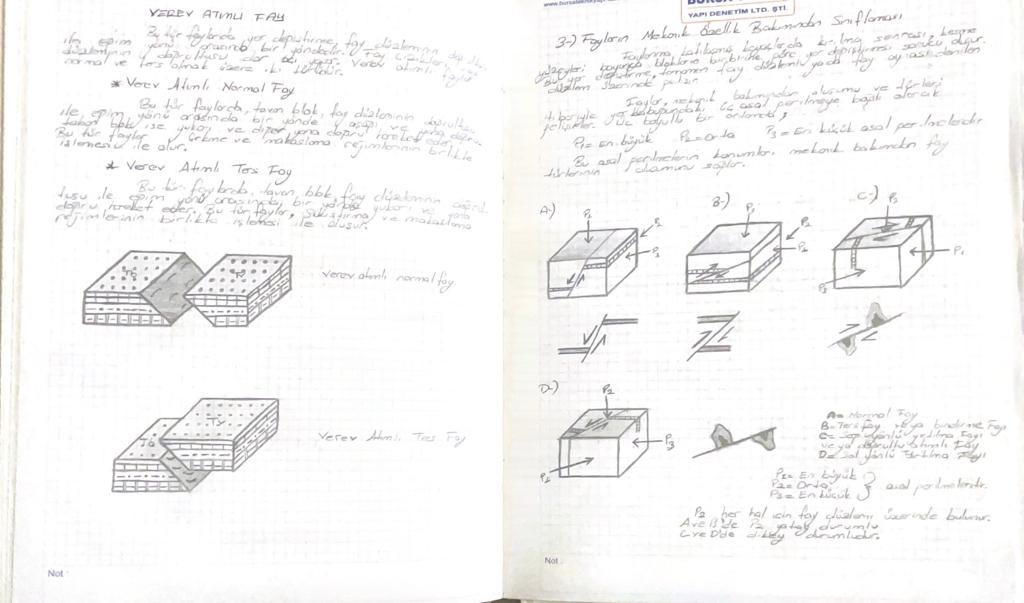 VEREV ATIMLI FAY
Bu tür faylarda yer değiştirme, fay düzleminin doğrultu
ile eğim yönü arasında bir yöndedir. Fay çizikleri, fay
düzleminin doğrultusu dar açı yapar. Verev atımlı faylar
normal ve ters olmak üzere iki türlüdür.
* Verev Atımlı Normal Fay
Bu tür faylarda, tavan blok, fay düzleminin doğrultusu
ile, eğim yönü arasında bir yönde aşağı ve yana doğru,
taban blok ise yukarı ve diğer yana doğru hareket eder.
Bu tür faylar ve makaslama rejimlerinin birlikte
işlemesi ile olur.
* Verev Atımlı Ters Fay
Bu tür faylarda, tavan blok fay düzleminin doğrul-
tusu ile eğim yönü arasında bir yönde yukarı ve yana
doğru hareket eder. Bu tür faylar, sıkıştırma ve makaslama
rejimlerinin birlikte işlemesi ile oluşur.
verev atımlı normal fay
Verev Atımlı Ters Fay
Not :
YAPI DENETİM LTD. ŞTİ.
3-) Fayların Mekanik Özellik Bakımından Sınıflaması
Faylarma katılaşmış kayaçlarda kırılma sonrası, kesme
yüzeyleri boyunca blokların birbirine göre yer değiştirmesi sonucu oluşur.
Bu yer değiştirme, tamamen fay düzlemi yada fay aynası denilen
düzlem üzerinde gelişir.
Faylar, mekanik bakımından oluşumu ve türleri,
itibariyle yer kabuğundaki üç asal gerilmeye bağlı olarak
gelişirler. Üç boyutlu bir ortamda;
P1= En büyük P2= Orta P3= En küçük asal gerilmelerdir
Bu asal gerilmelerin konumları, mekanik bakımdan fay
türlerinin oluşumunu sağlar.
A-) B-) C-)
D-)
A= Normal Fay
B= Ters fay veya bindirme Fayı
C= Sağ yönlü yırtılma Fayı
veya doğrultu atımlı Fay
D= Sol yönlü Yırtılma Fayı
P1= En büyük
P2= Orta
P3= En küçük
asal gerilmelerdir.
P2 her hal için fay düzlemi üzerinde bulunur.
A ve B'de P2 yatay durumlu
C ve D'de dikey durumludur.
Not :